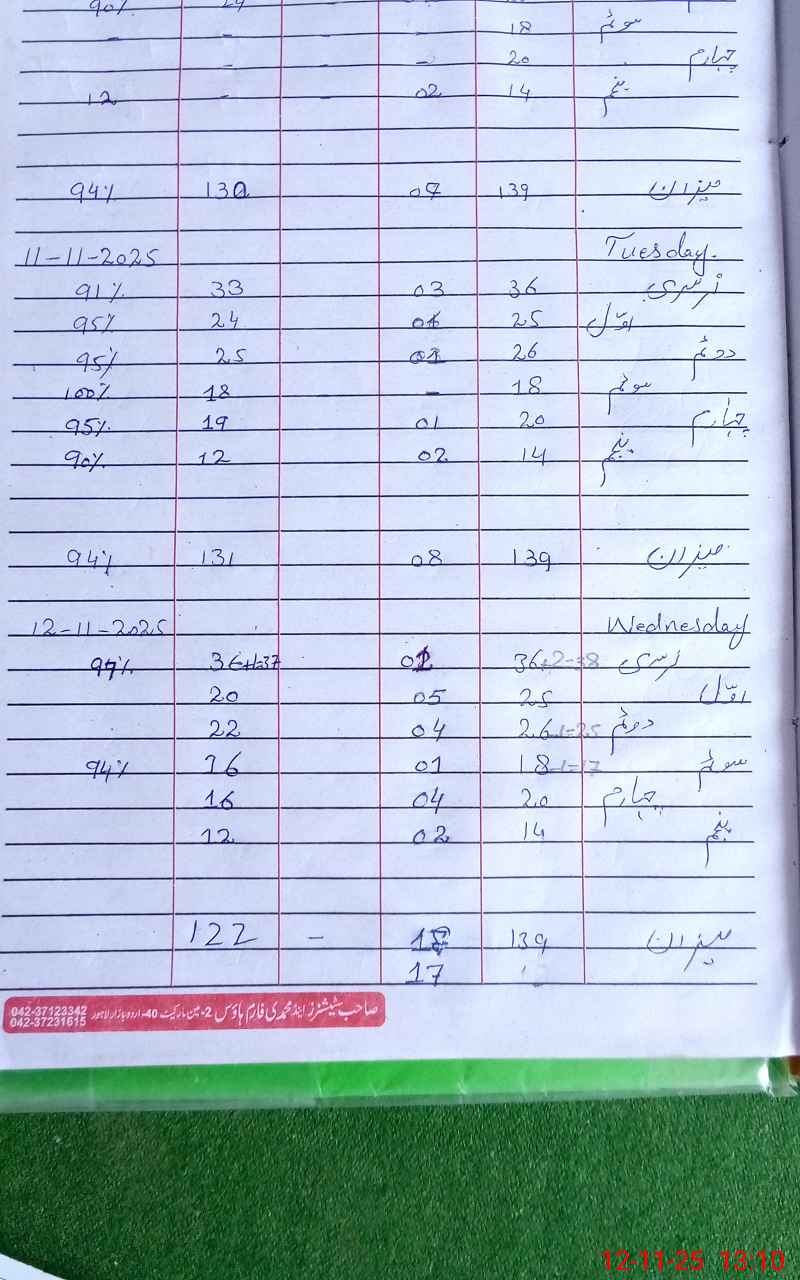 90% 29
- - - 18 سوئم
- - 20 چہارم
12 - - 02 14 پنجم
94% 130 09 139 میزان
11-11-2025 Tuesday.
91% 33 03 36 نرسری
95% 24 01 25 اوّل
95% 25 01 26 دوئم
100% 18 - 18 سوئم
95% 19 01 20 چہارم
90% 12 02 14 پنجم
94% 131 08 139 میزان
12-11-2025 Wednesday
97% 36+1=37 01 36+2=38 نرسری
20 05 25 اوّل
22 04 26-1=25 دوئم
94% 16 01 18-1=17 سوئم
16 04 20 چہارم
12 02 14 پنجم
122 - 139 میزان
17
صاحب سٹیشنرز اینڈ محمدی فارم ہاؤس 2-مین مارکیٹ 40-اردو بازار لاہور 042-37123342
042-37231615
12-11-25 13:10